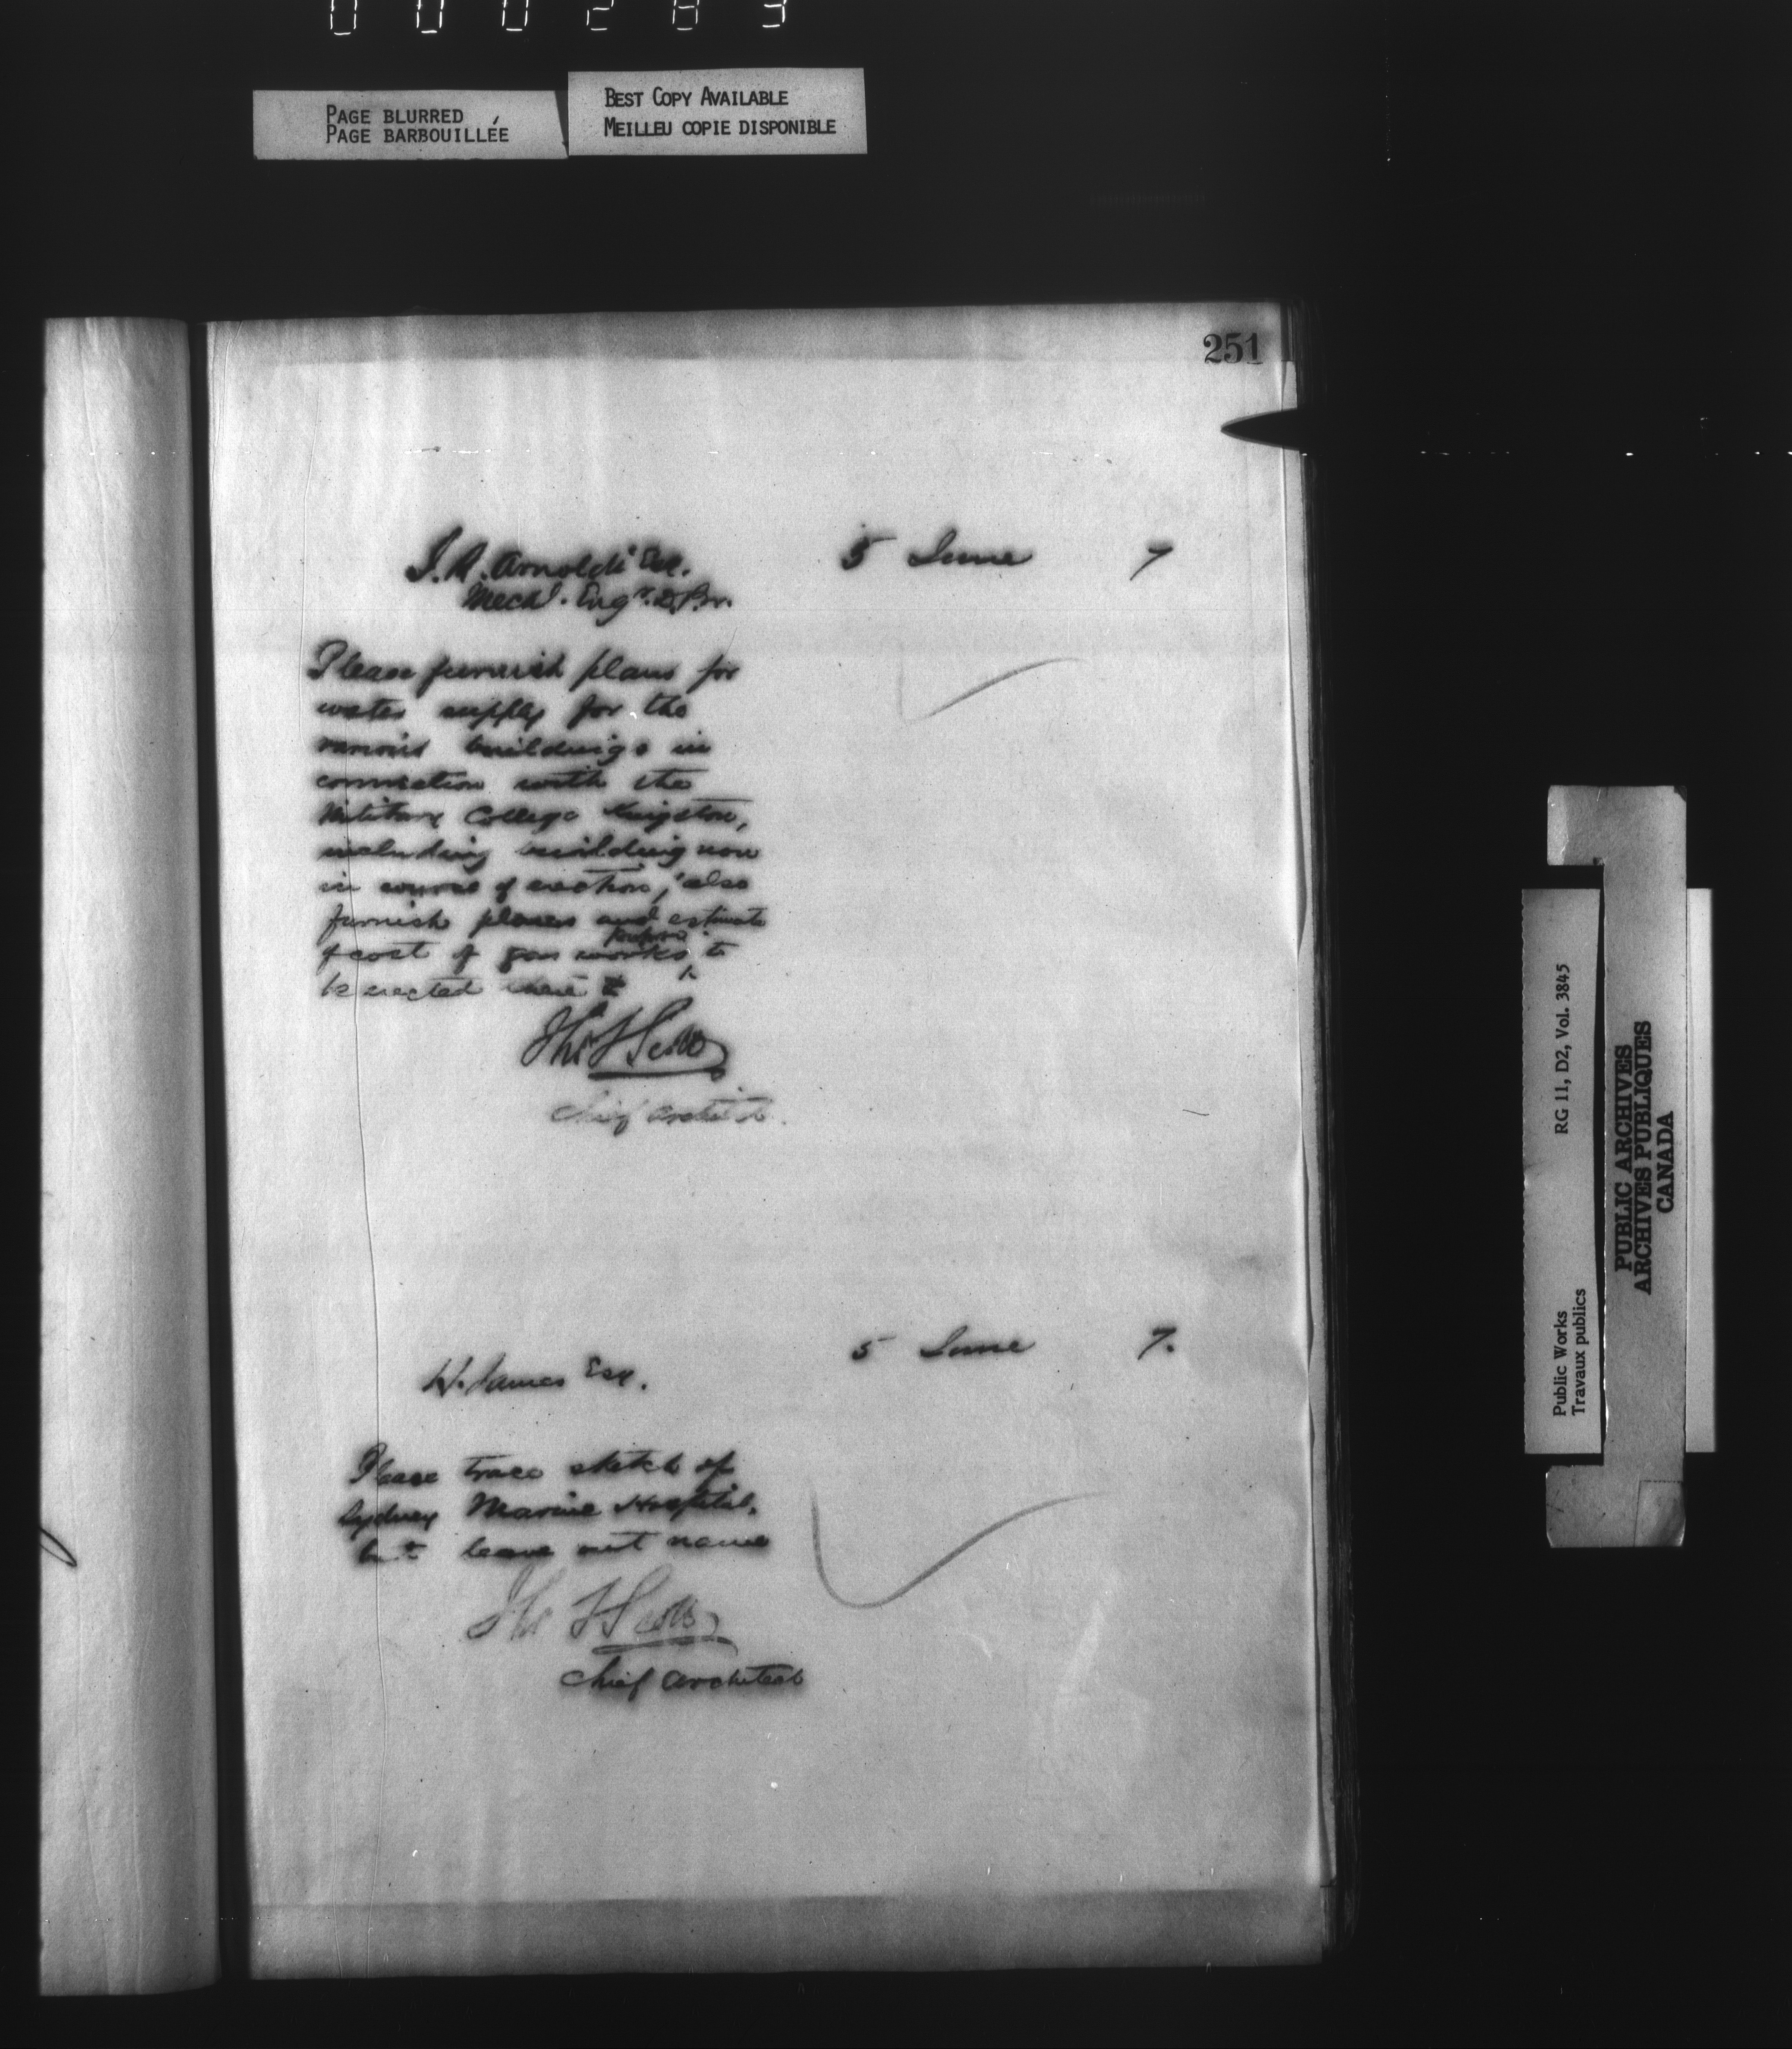 000283
PAGE BLURRED
PAGE BARBOUILLÉE
BEST COPY AVAILABLE
MEILLEU COPIE DISPONIBLE
251
5 June 7
J. R. Arnoldi Esq.
Mechl. Engr. D.P.W.
Please furnish plans for
water supply for the
various buildings in
connection with the
Military College Kingston,
including building now
in course of erection, also
furnish plans and estimate
of cost of gas works, to
be erected there
Thos S Scott
Chief Architect.
5 June 7.
W. James Esq.
Please trace sketch of
Sydney Marine Hospital,
but leave out name
Thos S Scott
Chief Architect
RG 11, D2, Vol. 3845
Public Works
Travaux publics
PUBLIC ARCHIVES
ARCHIVES PUBLIQUES
CANADA